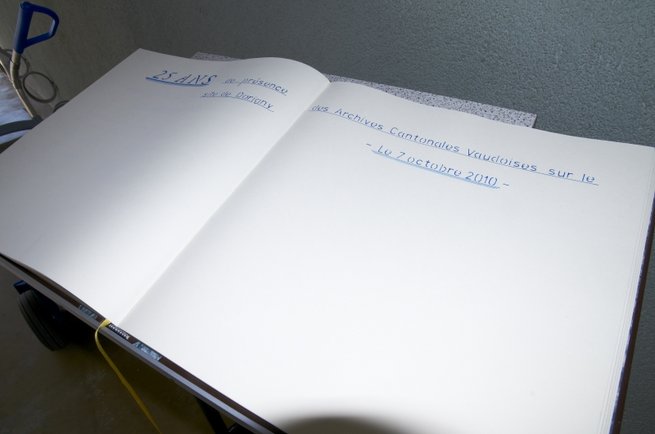 25 ANS de présence des Archives Cantonales Vaudoises sur le
site de Dorigny - Le 7 octobre 2010 -